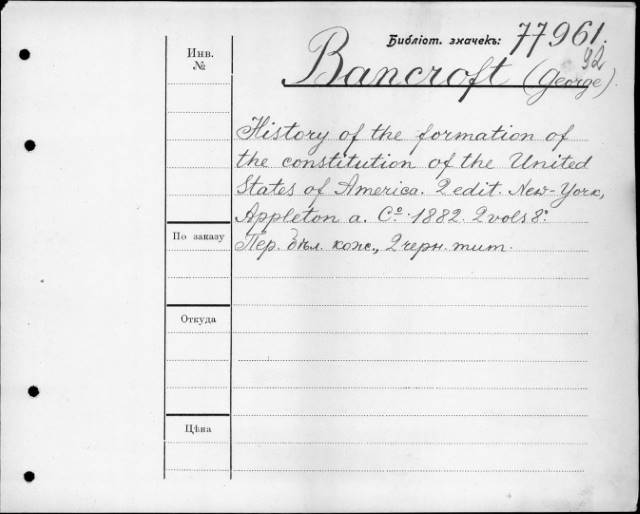 Библіот. значекъ: 77961.
92
Bancroft (George).
Инв.
№
History of the formation of
the constitution of the United
States of America. 2 edit. New-York,
Appleton a. Cº 1882. 2 vols 8º.
По заказу
Пер. бѣл. кож., 2 черн. тит.
Откуда
Цѣна